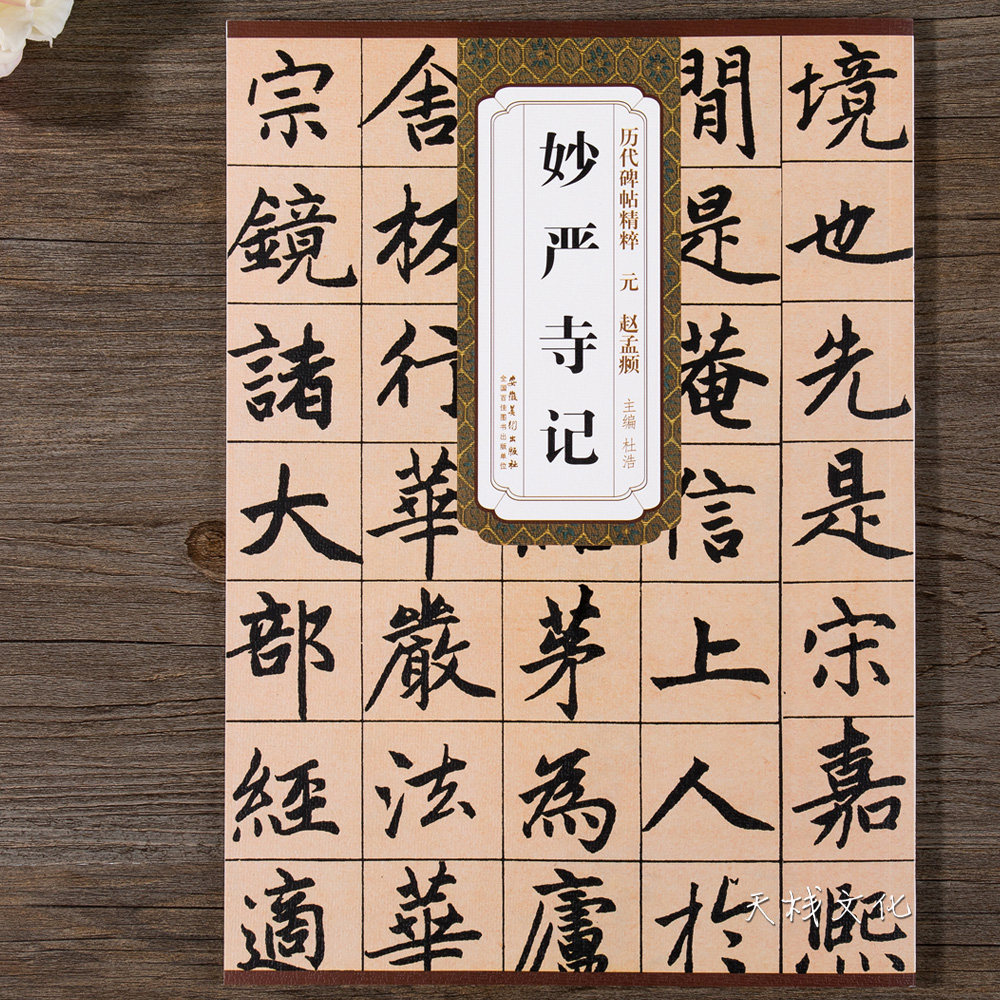 境也先是宋嘉熙
閒是菴信上人於
茅為廬
舍杤行華嚴法華
宗鏡諸大部經適
历代碑帖精粹 元 赵孟頫
主编 杜浩
妙严寺记
安徽美术出版社
全国百佳图书出版单位
天栈文化